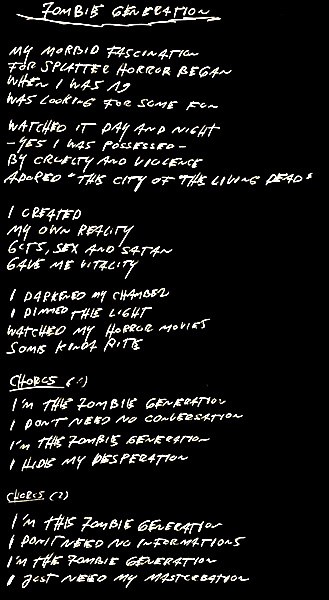 ZOMBIE GENERATION
MY MORBID FASCINATION
FOR SPLATTER HORROR BEGAN
WHEN I WAS 19
WAS LOOKING FOR SOME FUN
WATCHED IT DAY AND NIGHT
-YES I WAS POSSESSED-
BY CRUELTY AND VIOLENCE
ADORED "THE CITY OF THE LIVING DEAD"
I CREATED
MY OWN REALITY
GUTS, SEX AND SATAN
GAVE ME VITALITY
I DARKENED MY CHAMBER
I DIMMED THE LIGHT
WATCHED MY HORROR MOVIES
SOME KINDA RITE
CHORUS (1)
I'M THE ZOMBIE GENERATION
I DON'T NEED NO CONVERSATION
I'M THE ZOMBIE GENERATION
I HIDE MY DESPERATION
CHORUS (2)
I'M THE ZOMBIE GENERATION
I DON'T NEED NO INFORMATIONS
I'M THE ZOMBIE GENERATION
I JUST NEED MY MASTURBATION